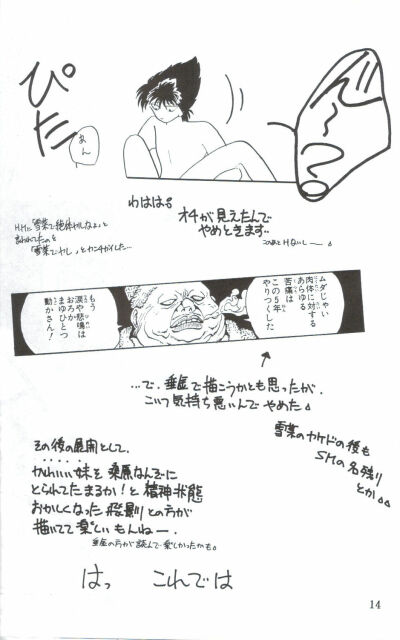 ぴた
あん
ん~?
わはは。
オチが見えたんで
やめときます…
このあとHないし―。
H.H.に「雪菜で絶体ヤルなよ」と
言われてたのを
「雪菜でヤレ」とカンチガイした…
ムダじゃい
肉体に対する
あらゆる
苦痛は
この5年
やりつくした
もう
涙や悲鳴は
おろか
まゆひとつ
動かさん!
…で、垂金で描こうかとも思ったが、
こいつ気持ち悪いんでやめた。
雪菜のヤケドの後も
SMの名残り
とか。
その後の展開として、
かわいい妹を桑原なんぞに
とられてたまるか!と精神状態
おかしくなった飛影との方が
描いてて楽しいもんねー。
垂金の方が読んで楽しかったかも。
はっ これでは
14